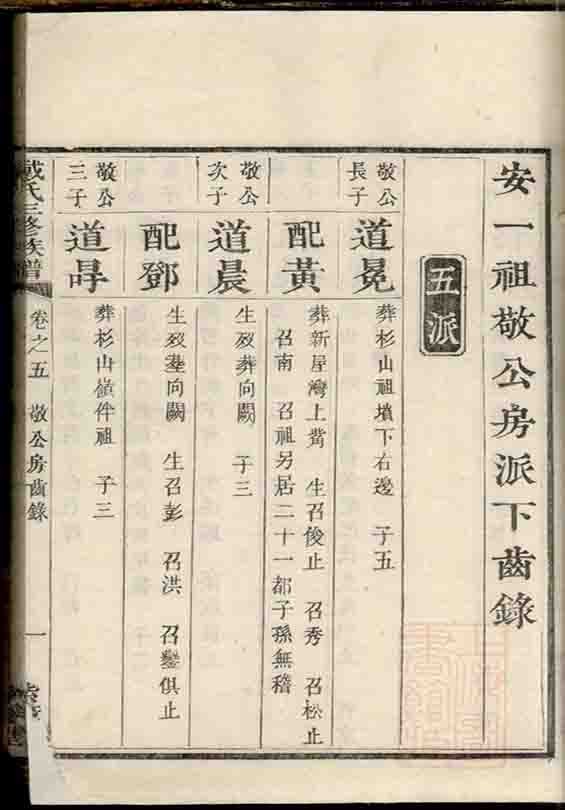 安一祖敬公房派下齒錄
五派
敬公長子
道冕
葬杉山祖墳下右邊 子五
配黃
葬新屋灣上黃 生召俊止 召秀 召松止
召南 召祖另居二十一都子孫無稽
敬公次子
道晨
生歿葬向闕 子三
配鄧
生歿塟向闕 生召彭 召洪 召鑾俱止
敬公三子
道㝵
葬杉山嶺伴祖 子三
戴氏三修族譜
卷之五 敬公房齒錄
一